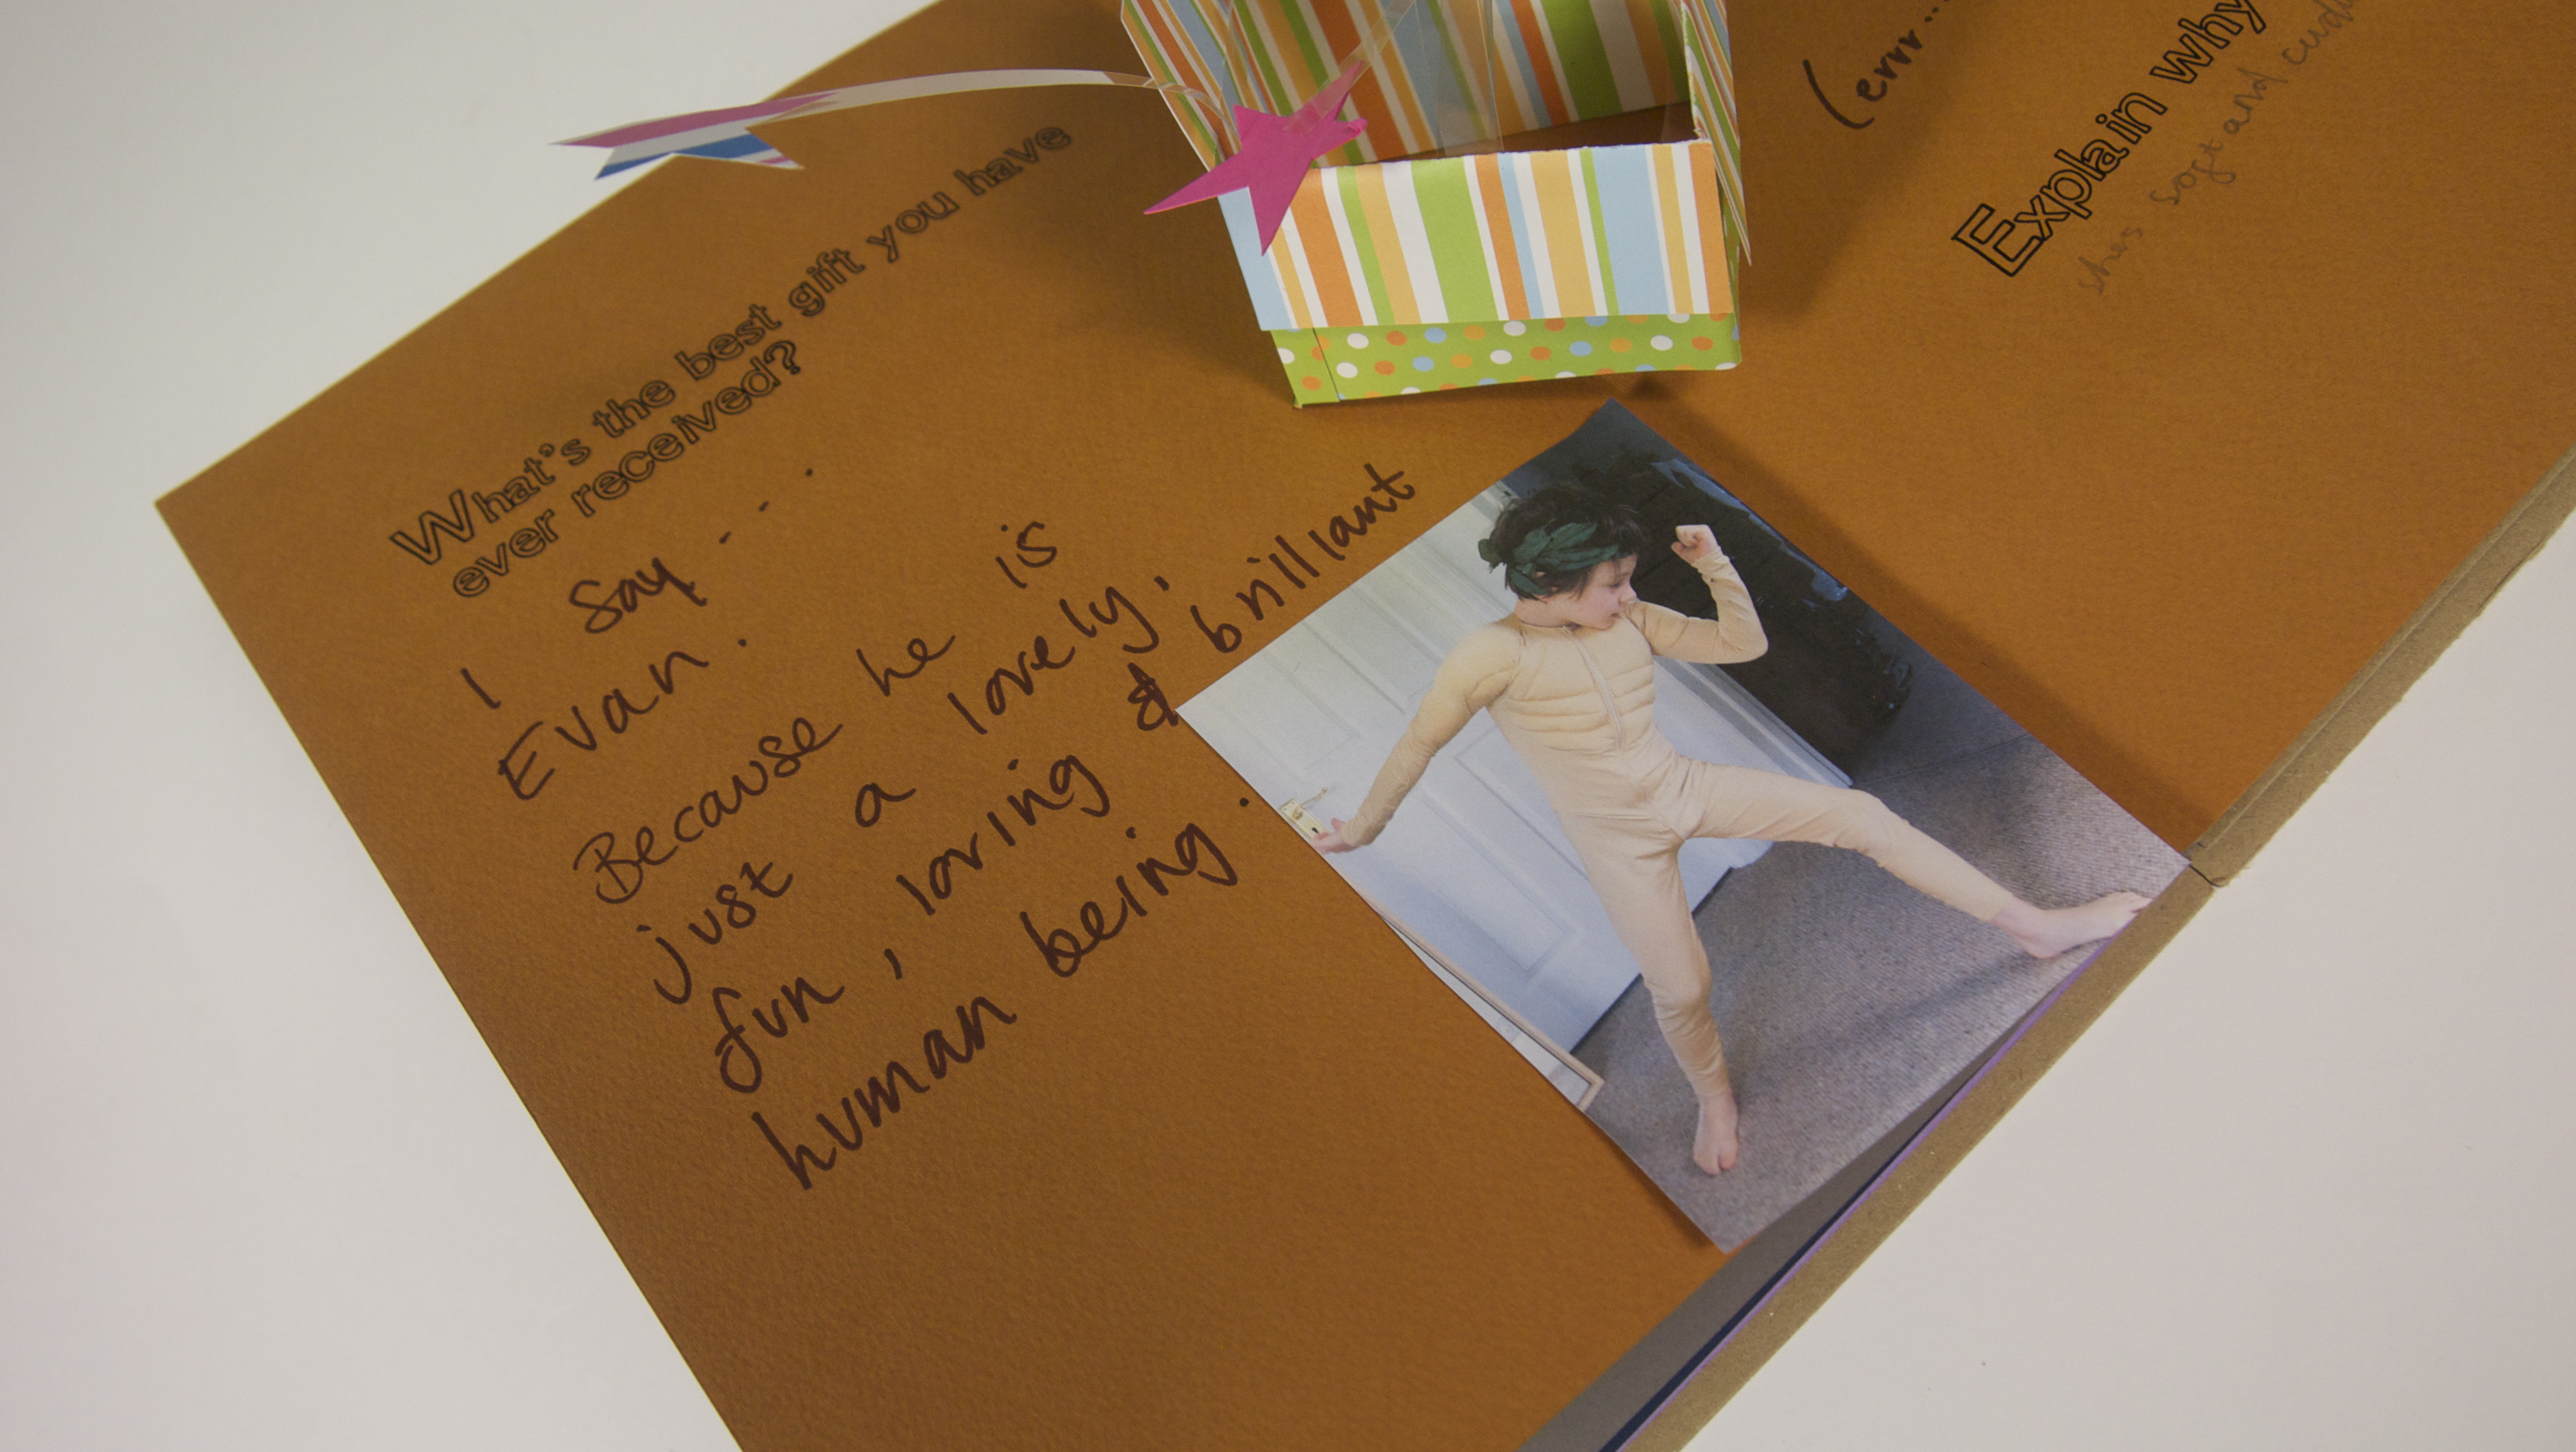 What's the best gift you have
ever received?
I say....
Evan.
Because he is
just a lovely,
fun, loving & brilliant
human being.
(errr...
Explain why
shes soft and